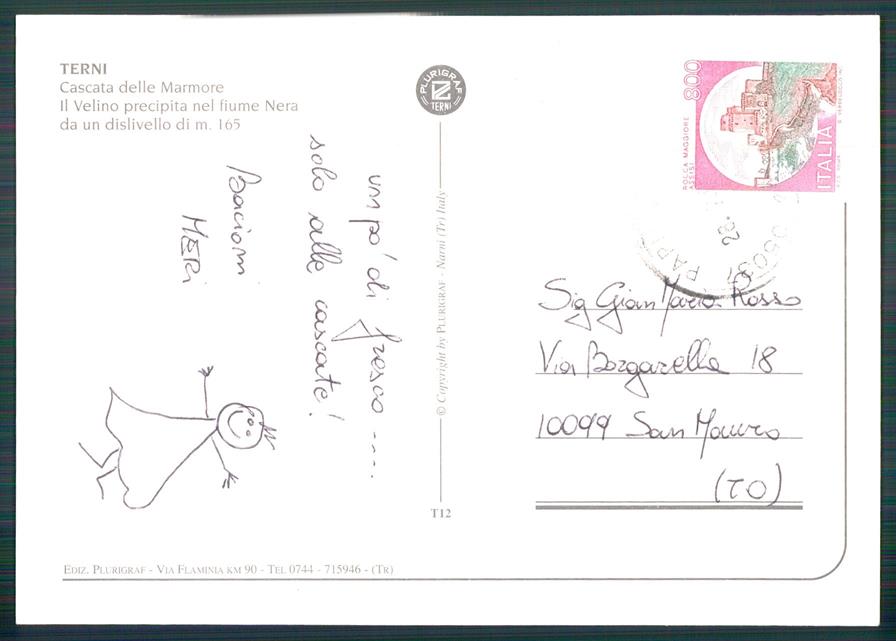 TERNI
Cascata delle Marmore
Il Velino precipita nel fiume Nera
da un dislivello di m. 165
PLURIGRAF
TERNI
800
ROCCA MAGGIORE
ASSISI
ITALIA
05031
28
un po' di fresco ....
solo alle cascate!
Bacioni
MERi
© Copyright by PLURIGRAF - Narni (Tr) Italy
T12
Sig Gian Maria Rosso
Via Borgarello 18
10099 San Mauro
(TO)
EDIZ. PLURIGRAF - VIA FLAMINIA KM 90 - TEL 0744 - 715946 - (TR)